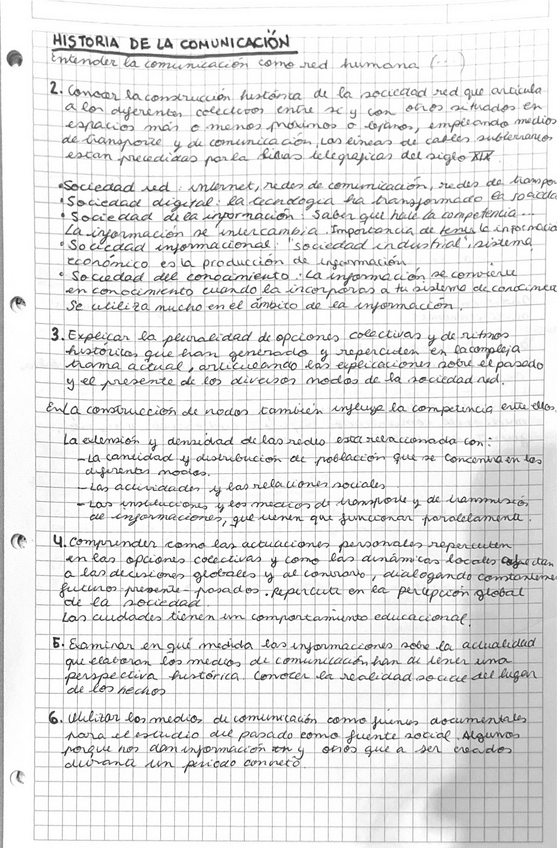 HISTORIA DE LA COMUNICACIÓN
Entender la comunicación como red humana (...)
2. Conocer la construcción histórica de la sociedad red que articula
a los diferentes colectivos entre sí y con otros situados en
espacios más o menos próximos o lejanos, empleando medios
de transporte y de comunicación, las líneas de cables subterráneos
estan precedidas por la líneas telegráficas del siglo XIX
• Sociedad red: internet, redes de comunicación, redes de transpor
• Sociedad digital: la tecnología ha transformado la socieda
• Sociedad de la información: Saber que hace la competencia...
La información se intercambia. Importancia de tener la informació
• Sociedad informacional: "sociedad industrial", sistema
económico es la producción de información
• Sociedad del conocimiento: La información se convierte
en conocimiento cuando la incorporas a tu sistema de conocimien
Se utiliza mucho en el ámbito de la información.
3. Explicar la pluralidad de opciones colectivas y de ritmos
históricos que han generado y repercuten en la compleja
trama actual, articulando las explicaciones sobre el pasado
y el presente de los diversos nodos de la sociedad red.
En la construcción de nodos también influye la competencia entre ellos.
La extensión y densidad de las redes está relaccionada con:
- La cantidad y distribución de población que se concentra en los
diferentes nodos.
- Las actividades y las relaciones sociales
- Las instituciones y los medios de transporte y de transmisión
de informaciones, que tienen que funcionar paralelamente.
4. Comprender como las actuaciones personales repercuten
en las opciones colectivas y como las dinámicas locales dan
a las decisiones globales y al contrario, dialogando constanteme
futuros-presente-pasados. Repercute en la percepción global
de la sociedad.
Las ciudades tienen un comportamiento educacional.
5. Examinar en qué medida las informaciones sobre la actualidad
que elaboran los medios de comunicación han de tener una
perspectiva histórica. Conocer la realidad social del lugar
de los hechos
6. Utilizar los medios de comunicación como fuentes documentales
para el estudio del pasado como fuente social. Algunos
porque nos dan información y otros que a ser creados
durante un periodo concreto.